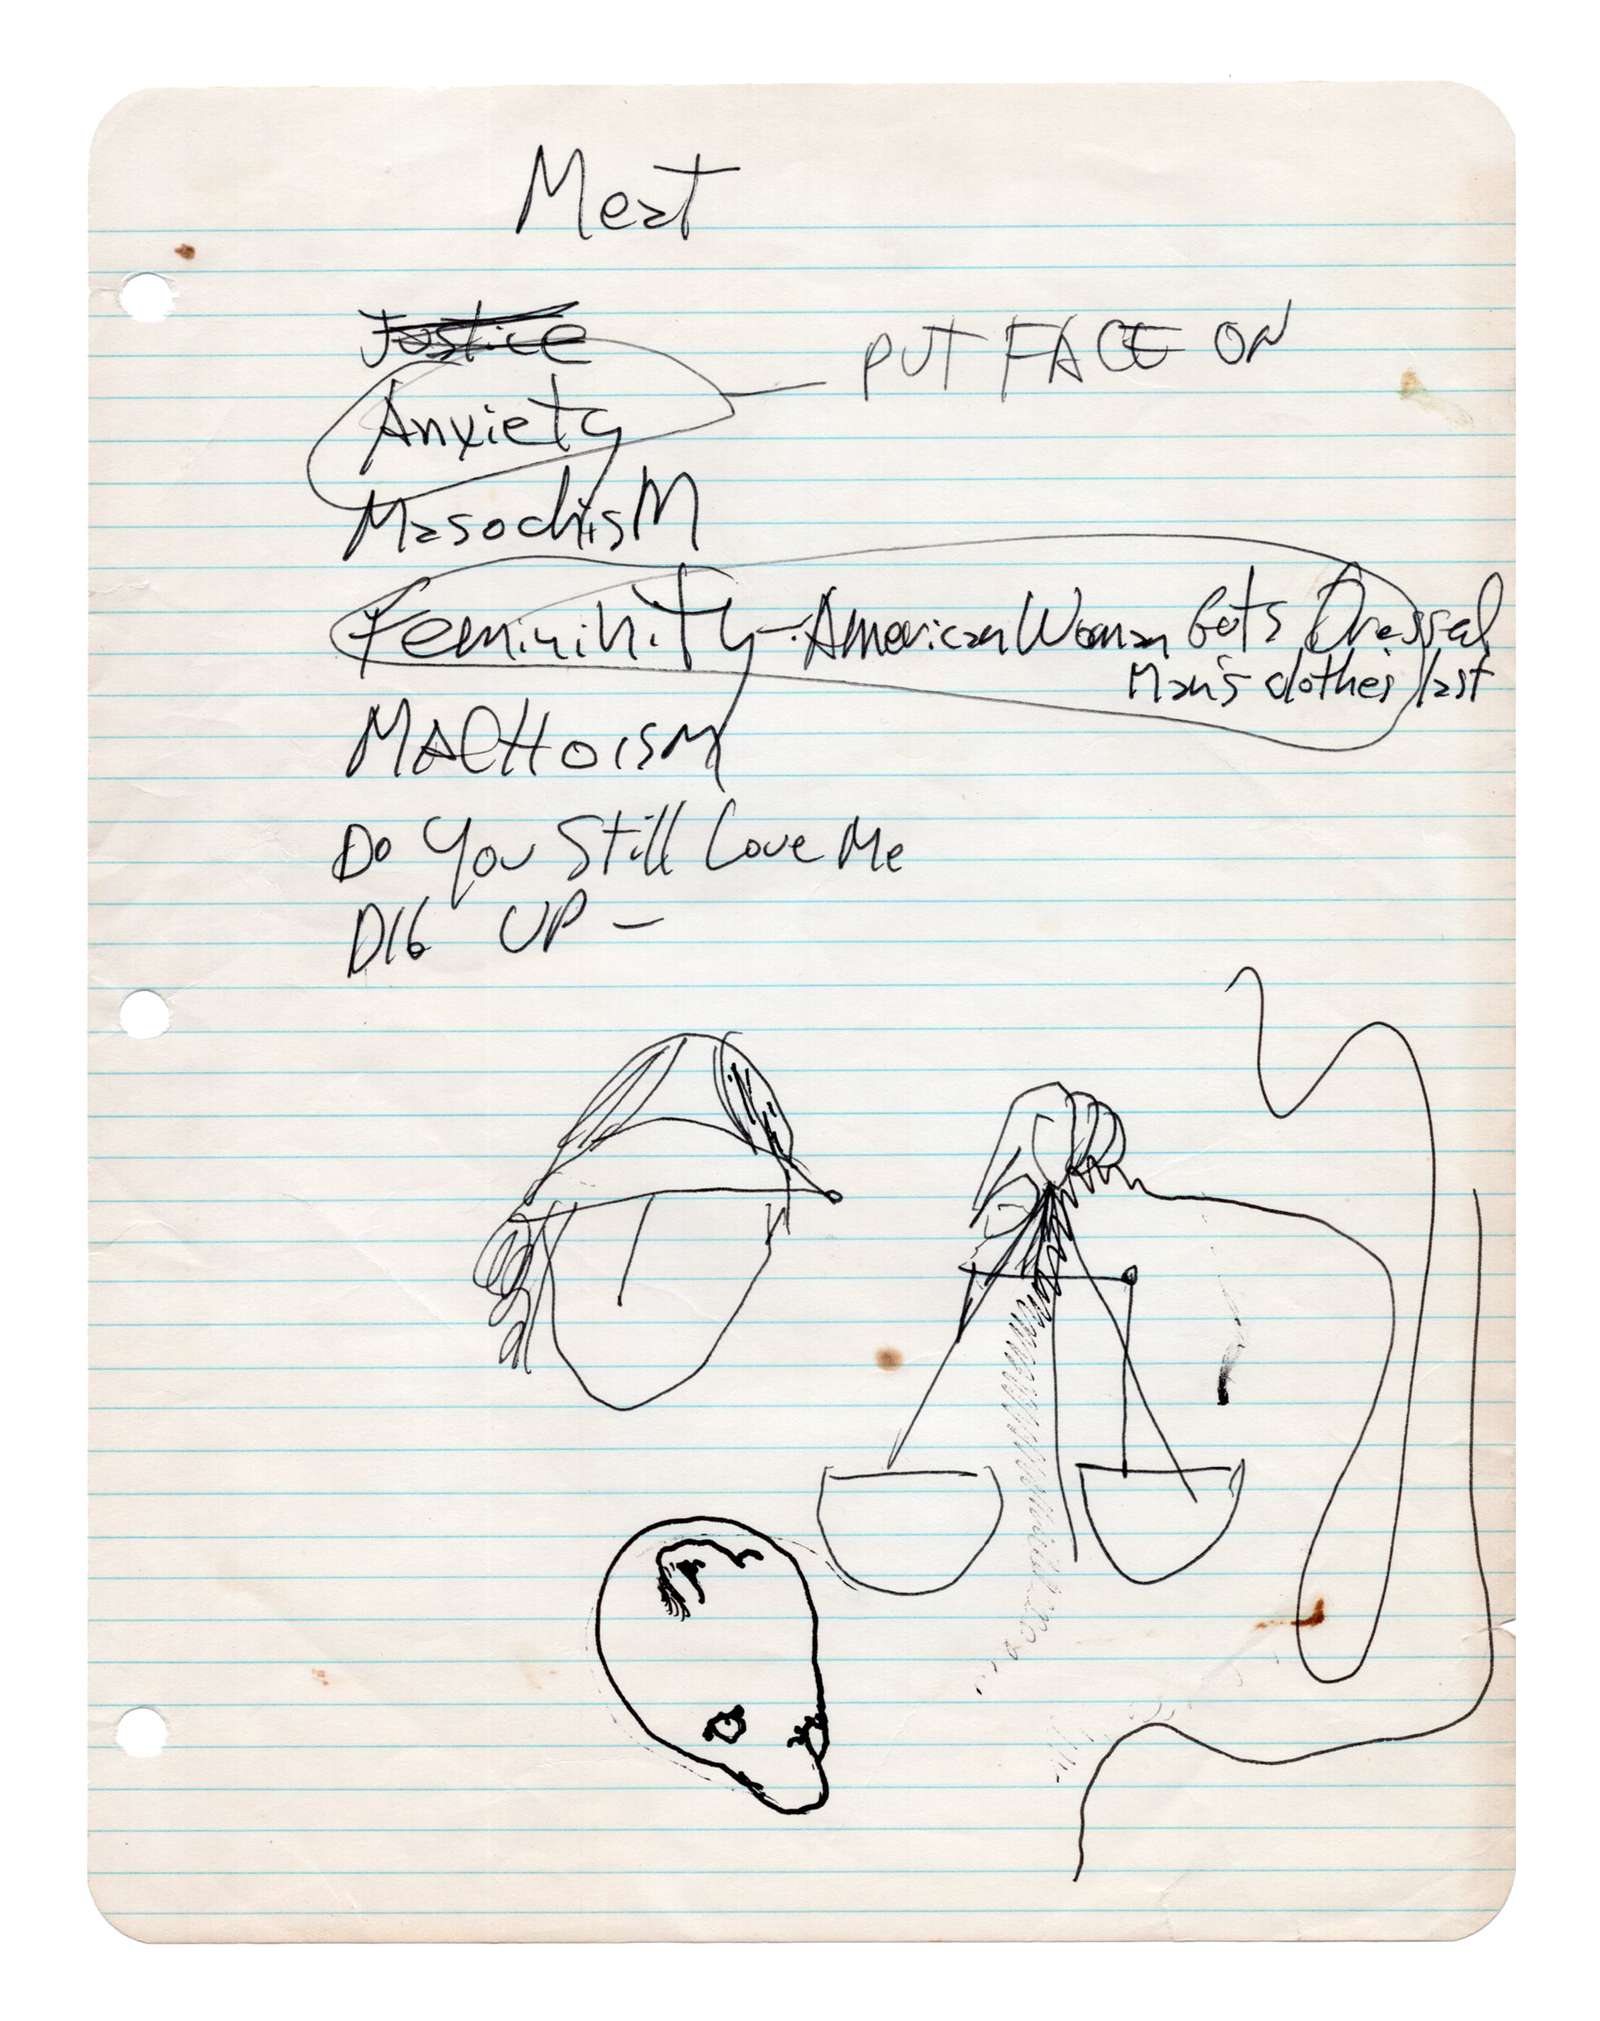 Meat
Justice
Anxiety — PUT FACE ON
MasochisM
Femininity - American Woman Gets Dressed
Man's clothes last
MACHOISM
Do You Still Love Me
DIG UP —